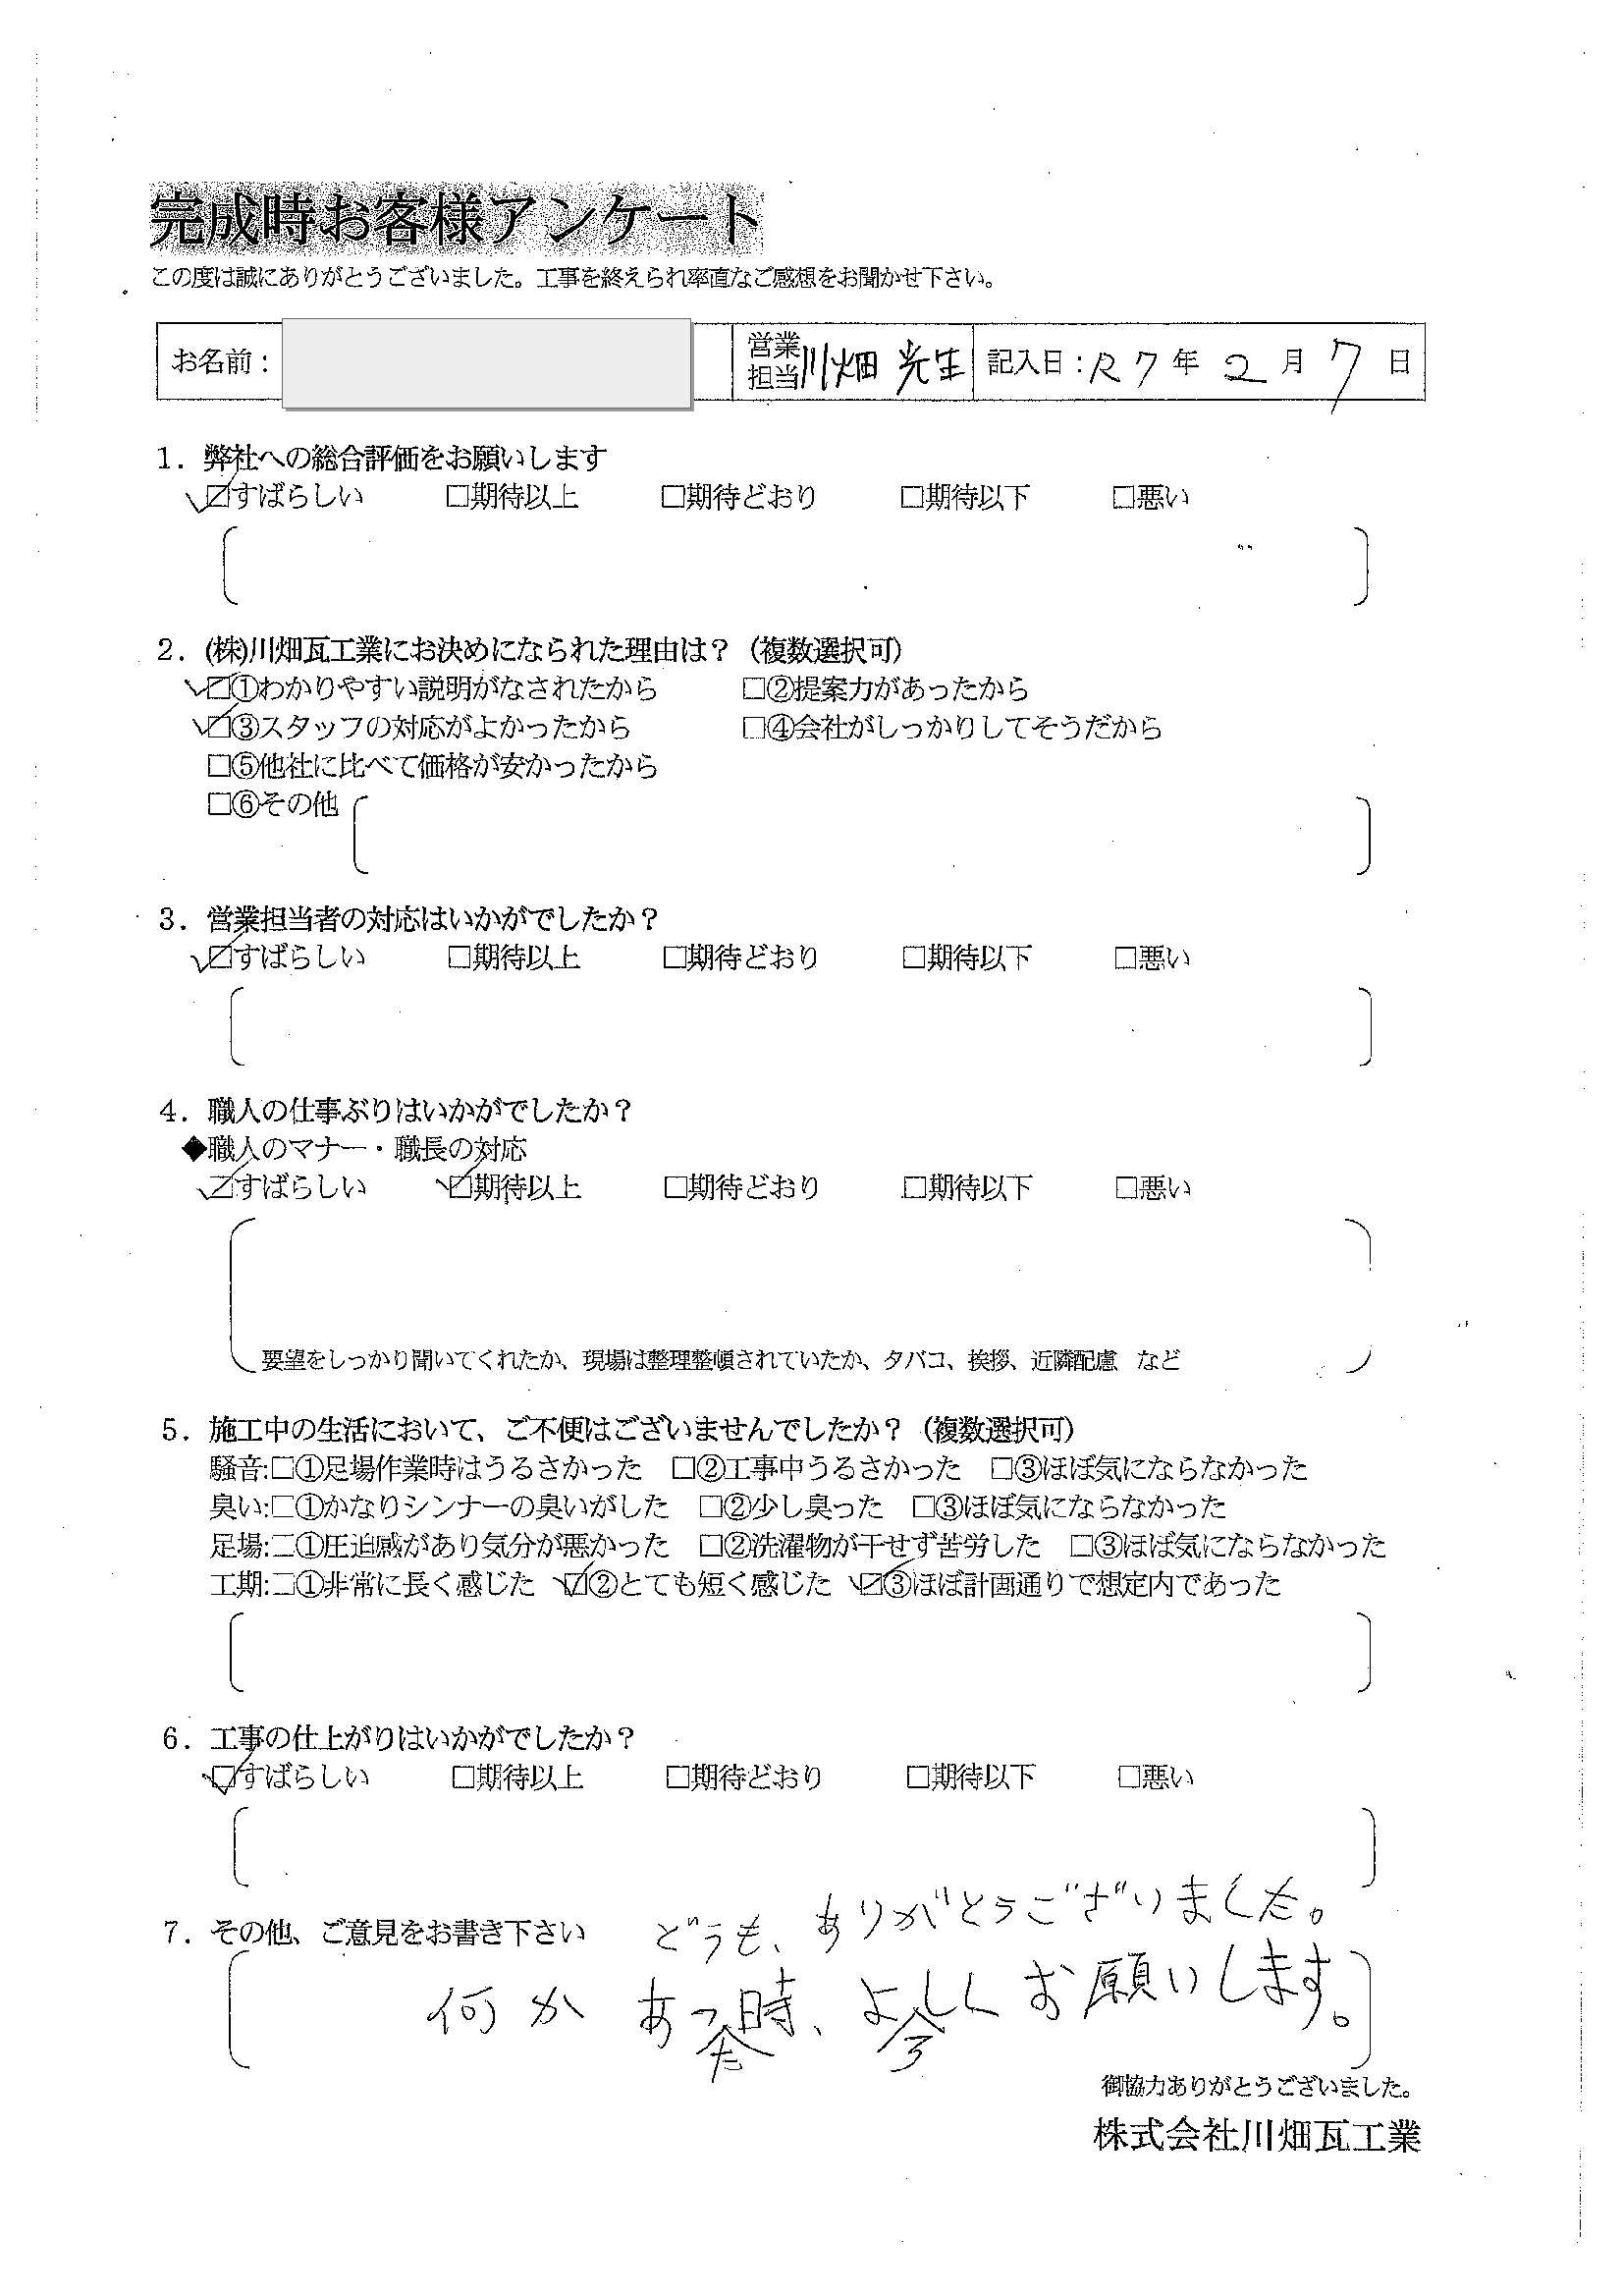 完成時お客様アンケート
この度は誠にありがとうございました。工事を終えられ率直なご感想をお聞かせ下さい。
お名前： 営業担当 川畑 光生 記入日：R7年2月7日
1．弊社への総合評価をお願いします
☑すばらしい □期待以上 □期待どおり □期待以下 □悪い
2．(株)川畑瓦工業にお決めになられた理由は？（複数選択可）
☑①わかりやすい説明がなされたから □②提案力があったから
☑③スタッフの対応がよかったから □④会社がしっかりしてそうだから
□⑤他社に比べて価格が安かったから
□⑥その他
3．営業担当者の対応はいかがでしたか？
☑すばらしい □期待以上 □期待どおり □期待以下 □悪い
4．職人の仕事ぶりはいかがでしたか？
◆職人のマナー・職長の対応
☑すばらしい ☑期待以上 □期待どおり □期待以下 □悪い
要望をしっかり聞いてくれたか、現場は整理整頓されていたか、タバコ、挨拶、近隣配慮　など
5．施工中の生活において、ご不便はございませんでしたか？（複数選択可）
騒音:□①足場作業時はうるさかった □②工事中うるさかった □③ほぼ気にならなかった
臭い:□①かなりシンナーの臭いがした □②少し臭った □③ほぼ気にならなかった
足場:□①圧迫感があり気分が悪かった □②洗濯物が干せず苦労した □③ほぼ気にならなかった
工期:□①非常に長く感じた ☑②とても短く感じた ☑③ほぼ計画通りで想定内であった
6．工事の仕上がりはいかがでしたか？
☑すばらしい □期待以上 □期待どおり □期待以下 □悪い
7．その他、ご意見をお書き下さい どうも、ありがとうございました。
何か あった時、よろしく お願いします。
御協力ありがとうございました。
株式会社川畑瓦工業